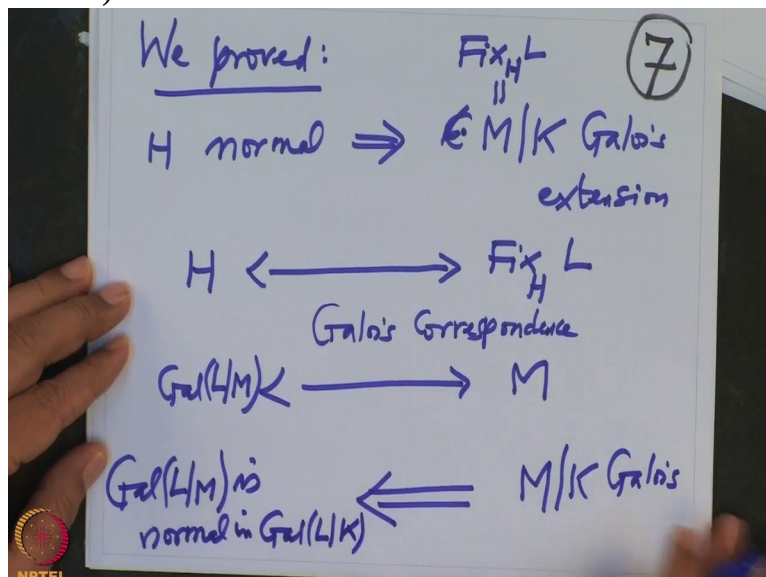 We proved:
Fix_H L
7
||
H normal ⇒ M/K Galois
extension
H ⟷ Fix_H L
Galois Correspondence
Gal(L/M) ⟷ M
Gal(L/M) is ⟸ M/K Galois
normal in Gal(L/K)
NPTEL